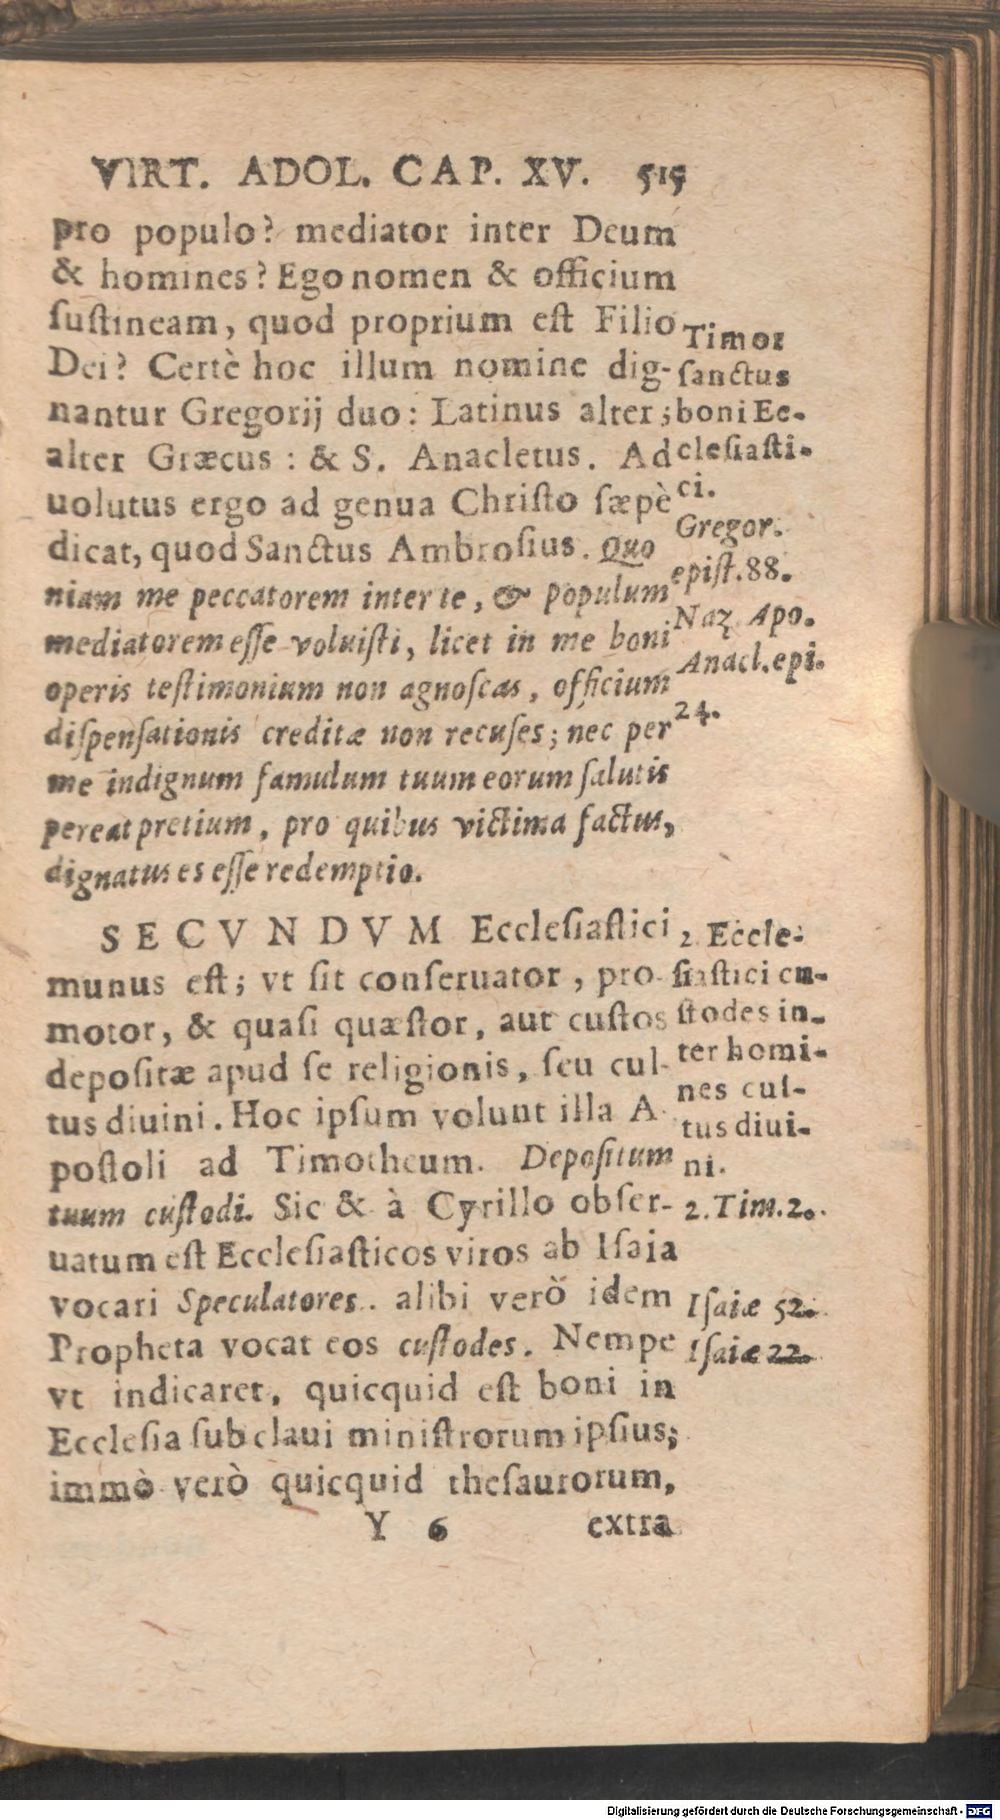 VIRT. ADOL. CAP. XV. 515
pro populo? mediator inter Deum
& homines? Ego nomen & officium
ſuſtineam, quod proprium eſt Filio
Dei? Certè hoc illum nomine dig-
nantur Gregorij duo: Latinus alter;
alter Græcus: & S. Anacletus. Ad
uolutus ergo ad genua Chriſto ſæpè
dicat, quod Sanctus Ambroſius. Quo
niam me peccatorem inter te, & populum
mediatorem eſſe voluiſti, licet in me boni
operis teſtimonium non agnoſcas, officium
diſpenſationis creditæ non recuſes; nec per
me indignum famulum tuum eorum ſalutis
pereat pretium, pro quibus victima factus,
dignatus es eſſe redemptio.
Timor
ſanctus
boni Ec-
cleſiaſti-
ci.
Gregor.
epiſt. 88.
Naz. Apo.
Anacl. epi.
24.
SECVNDVM Eccleſiaſtici
munus eſt; vt ſit conſeruator, pro-
motor, & quaſi quæſtor, aut cuſtos
depoſitæ apud ſe religionis, ſeu cul-
tus diuini. Hoc ipſum volunt illa A-
poſtoli ad Timotheum. Depoſitum
tuum cuſtodi. Sic & à Cyrillo obſer-
uatum eſt Eccleſiaſticos viros ab Iſaia
vocari Speculatores.. alibi verò idem
Propheta vocat eos cuſtodes. Nempe
vt indicaret, quicquid eſt boni in
Eccleſia ſub claui miniſtrorum ipſius;
immò verò quicquid theſaurorum,
2. Eccle-
ſiaſtici cu-
ſtodes in-
ter homi-
nes cul-
tus diui-
ni.
2. Tim. 2.
Iſaiæ 52.
Iſaiæ 22.
Y 6 extra
Digitalisierung gefördert durch die Deutsche Forschungsgemeinschaft - DFG